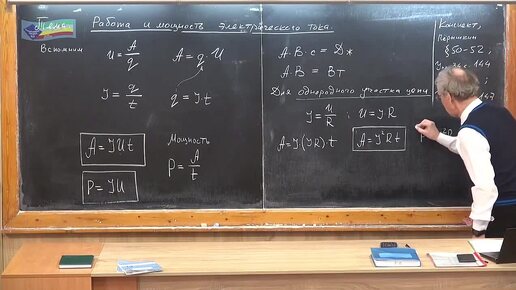 Тема
Работа и мощность электрического тока.
Вспомним
U = A/q
A = q U
J = q/t
q = J t
A = JUt
Мощность
P = A/t
P = JU
А·В·с = Дж
А·В = Вт
Для однородного участка цепи
J = U/R ; U = JR
A = J·(JR)·t
A = J²Rt
Конспект,
Перышкин
§50-52,